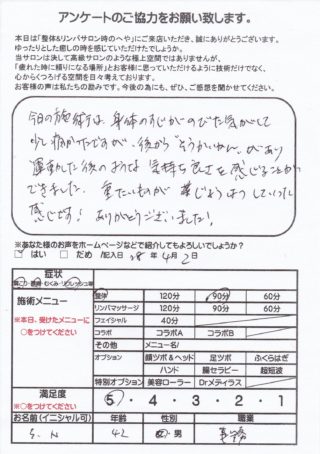 アンケートのご協力をお願い致します。
本日は「整体&リンパサロン時のへや」にご来店いただき、誠にありがとうございます。
ゆったりとした癒しの時を感じていただけたでしょうか。
当サロンは決して高級サロンのような極上空間ではありませんが、
「疲れた時に頼りになる場所」とお客様に思っていただけるように技術だけでなく、
心からくつろげる空間を日々考えております。
お客様の声は私たちの励みです。今後の為にも、ぜひ、ご感想を聞かせてください。
今日の施術は、身体のすじがのびた気がして
少し痛かったですが、後から"そうかいかん"があり
運動した後のような気持ち良さを感じることが
できました。重たいものが
感じです! ありがとうございました!
※あなた様のお声をホームページなどで紹介してもよろしいでしょうか?
□ はい □ だめ /記入日 28 年 4 月 2 日
症状
肩こり・腰痛・むくみ・リフレッシュ等
施術メニュー
※本日、受けたメニューに
○をつけてください
整体 120分 90分 60分
リンパマッサージ 120分 90分 60分
フェイシャル 40分
コラボ コラボA コラボB
その他 メニュー名/
オプション 頭ツボ&ヘッド 足ツボ ふくらはぎ
ハンド 腸セラピー 超短波
特別オプション 美容ローラー Drメディラス
満足度
※○をつけてください
5・4・3・2・1
お名前(イニシャル可) 年齢 性別 職業
S.N 42 女・男